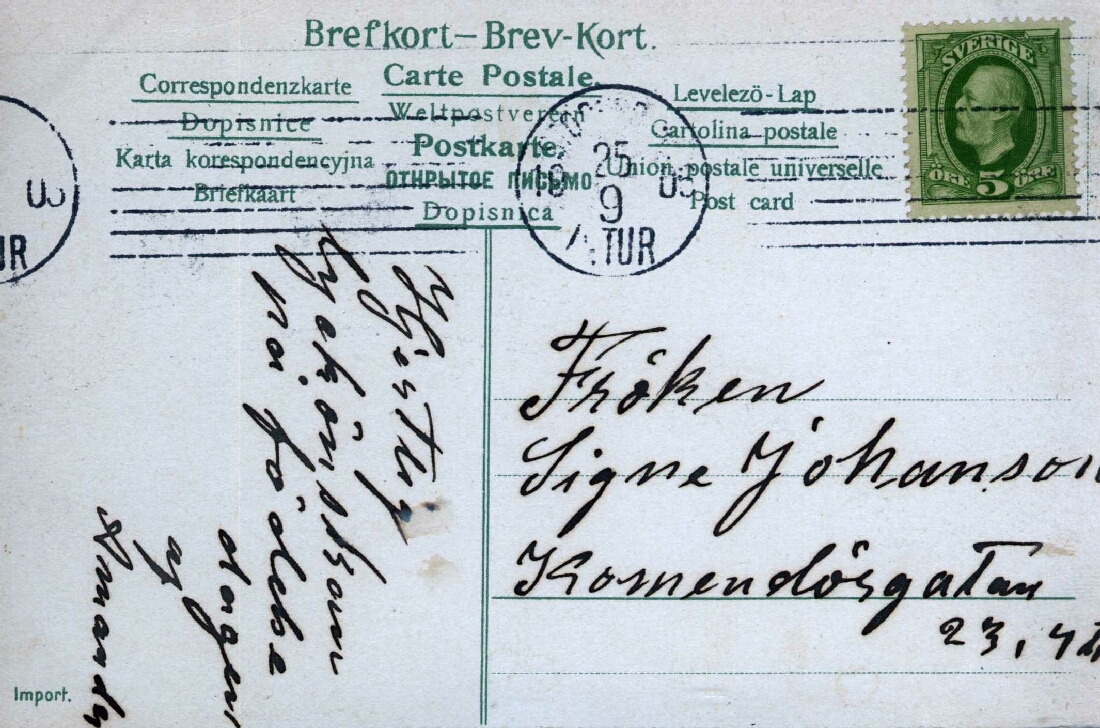 Brefkort–Brev-Kort.
Correspondenzkarte
Carte Postale.
Levelezö-Lap
Dopisnice
Weltpostverein
Cartolina postale
Karta korespondencyjna
Postkarte
Union postale universelle
Briefkaart
ОТКРЫТОЕ ПИСЬМО
Post card
Dopisnica
SVERIGE
ÖRE 5 ÖRE
25
9
TUR
Hjertlig
lyckönskan
på födelse
dagen
af
Fröken
Signe Johanson
Komendörsgatan
23,
Import.